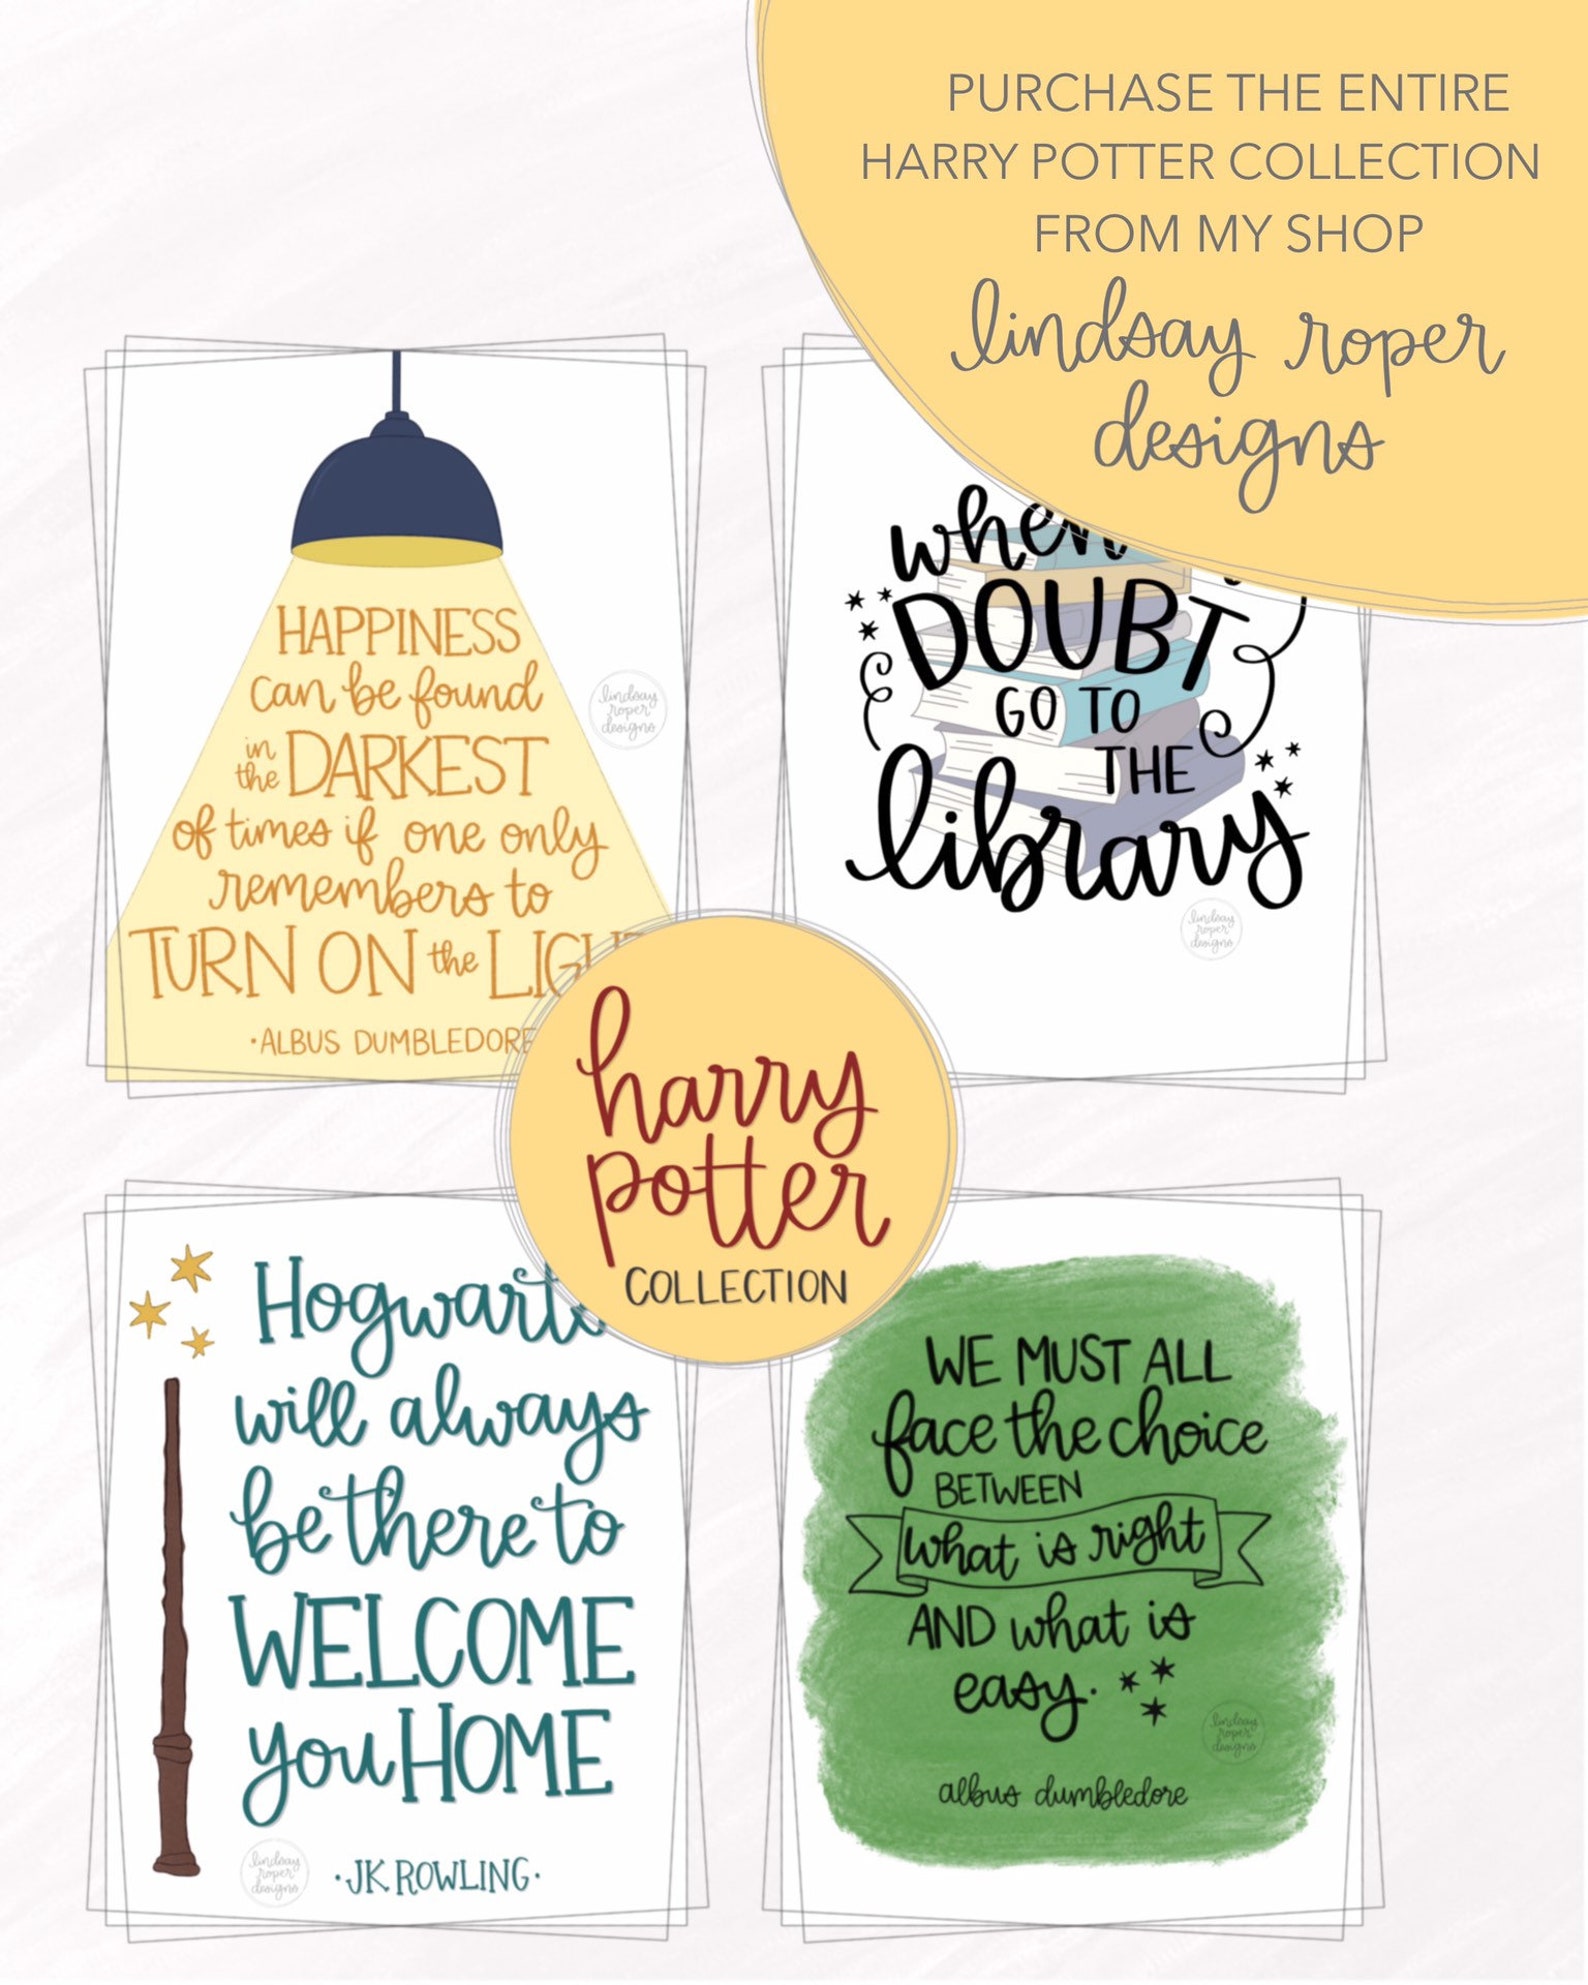 PURCHASE THE ENTIRE
HARRY POTTER COLLECTION
FROM MY SHOP
lindsay roper
designs
HAPPINESS
can be found
in
the DARKEST
of times if one only
remembers to
TURN ON the LIGH
•ALBUS DUMBLEDORE
lindsay
roper
designs
when
DOUBT
GO TO
THE
library
lindsay
roper
designs
harry
potter
COLLECTION
Hogwarts
will always
be there to
WELCOME
you HOME
lindsay
roper
designs
•JK ROWLING•
WE MUST ALL
face the choice
BETWEEN
what is right
AND what is
easy.
lindsay
roper
designs
albus dumbledore